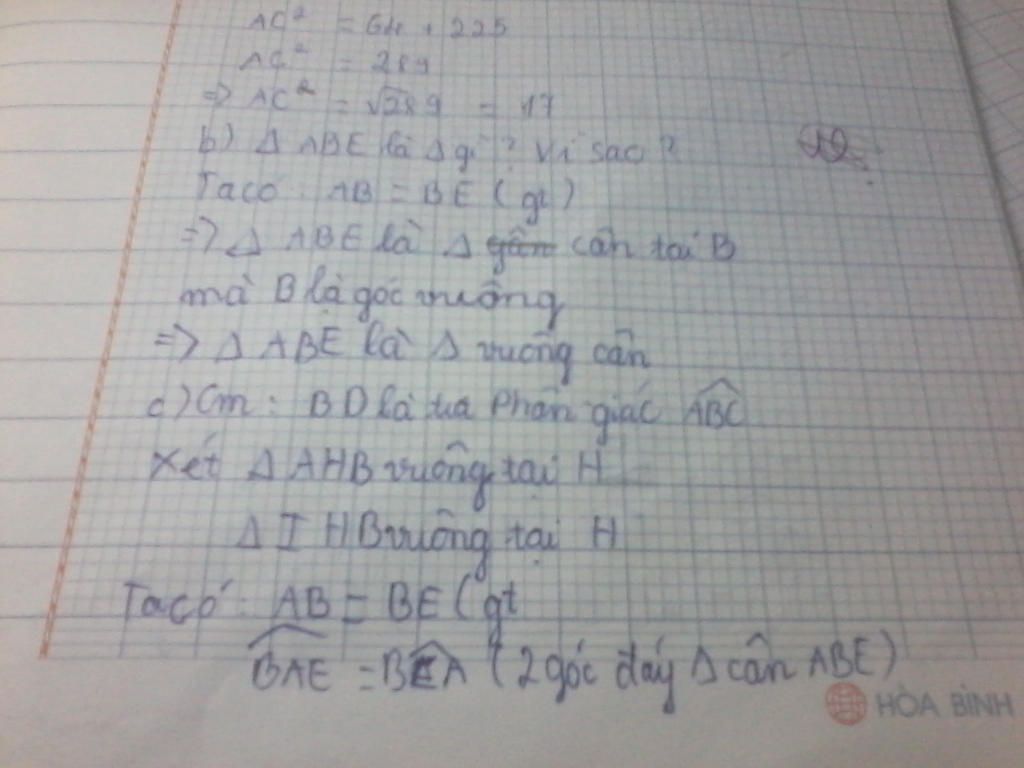 AC² = 64 + 225
AC² = 289
=> AC² = √289 = 17
b) Δ ABE là Δ gì? Vì sao?
Ta có: AB = BE (gt)
=> Δ ABE là Δ cân tại B
mà B là góc vuông
=> Δ ABE là Δ vuông cân
c) Cm: BD là tia phân giác ABC
Xét Δ AHB vuông tại H
Δ IHB vuông tại H
Ta có: AB = BE (gt
BAE = BEA (2 góc đáy Δ cân ABE)
HÒA BÌNH